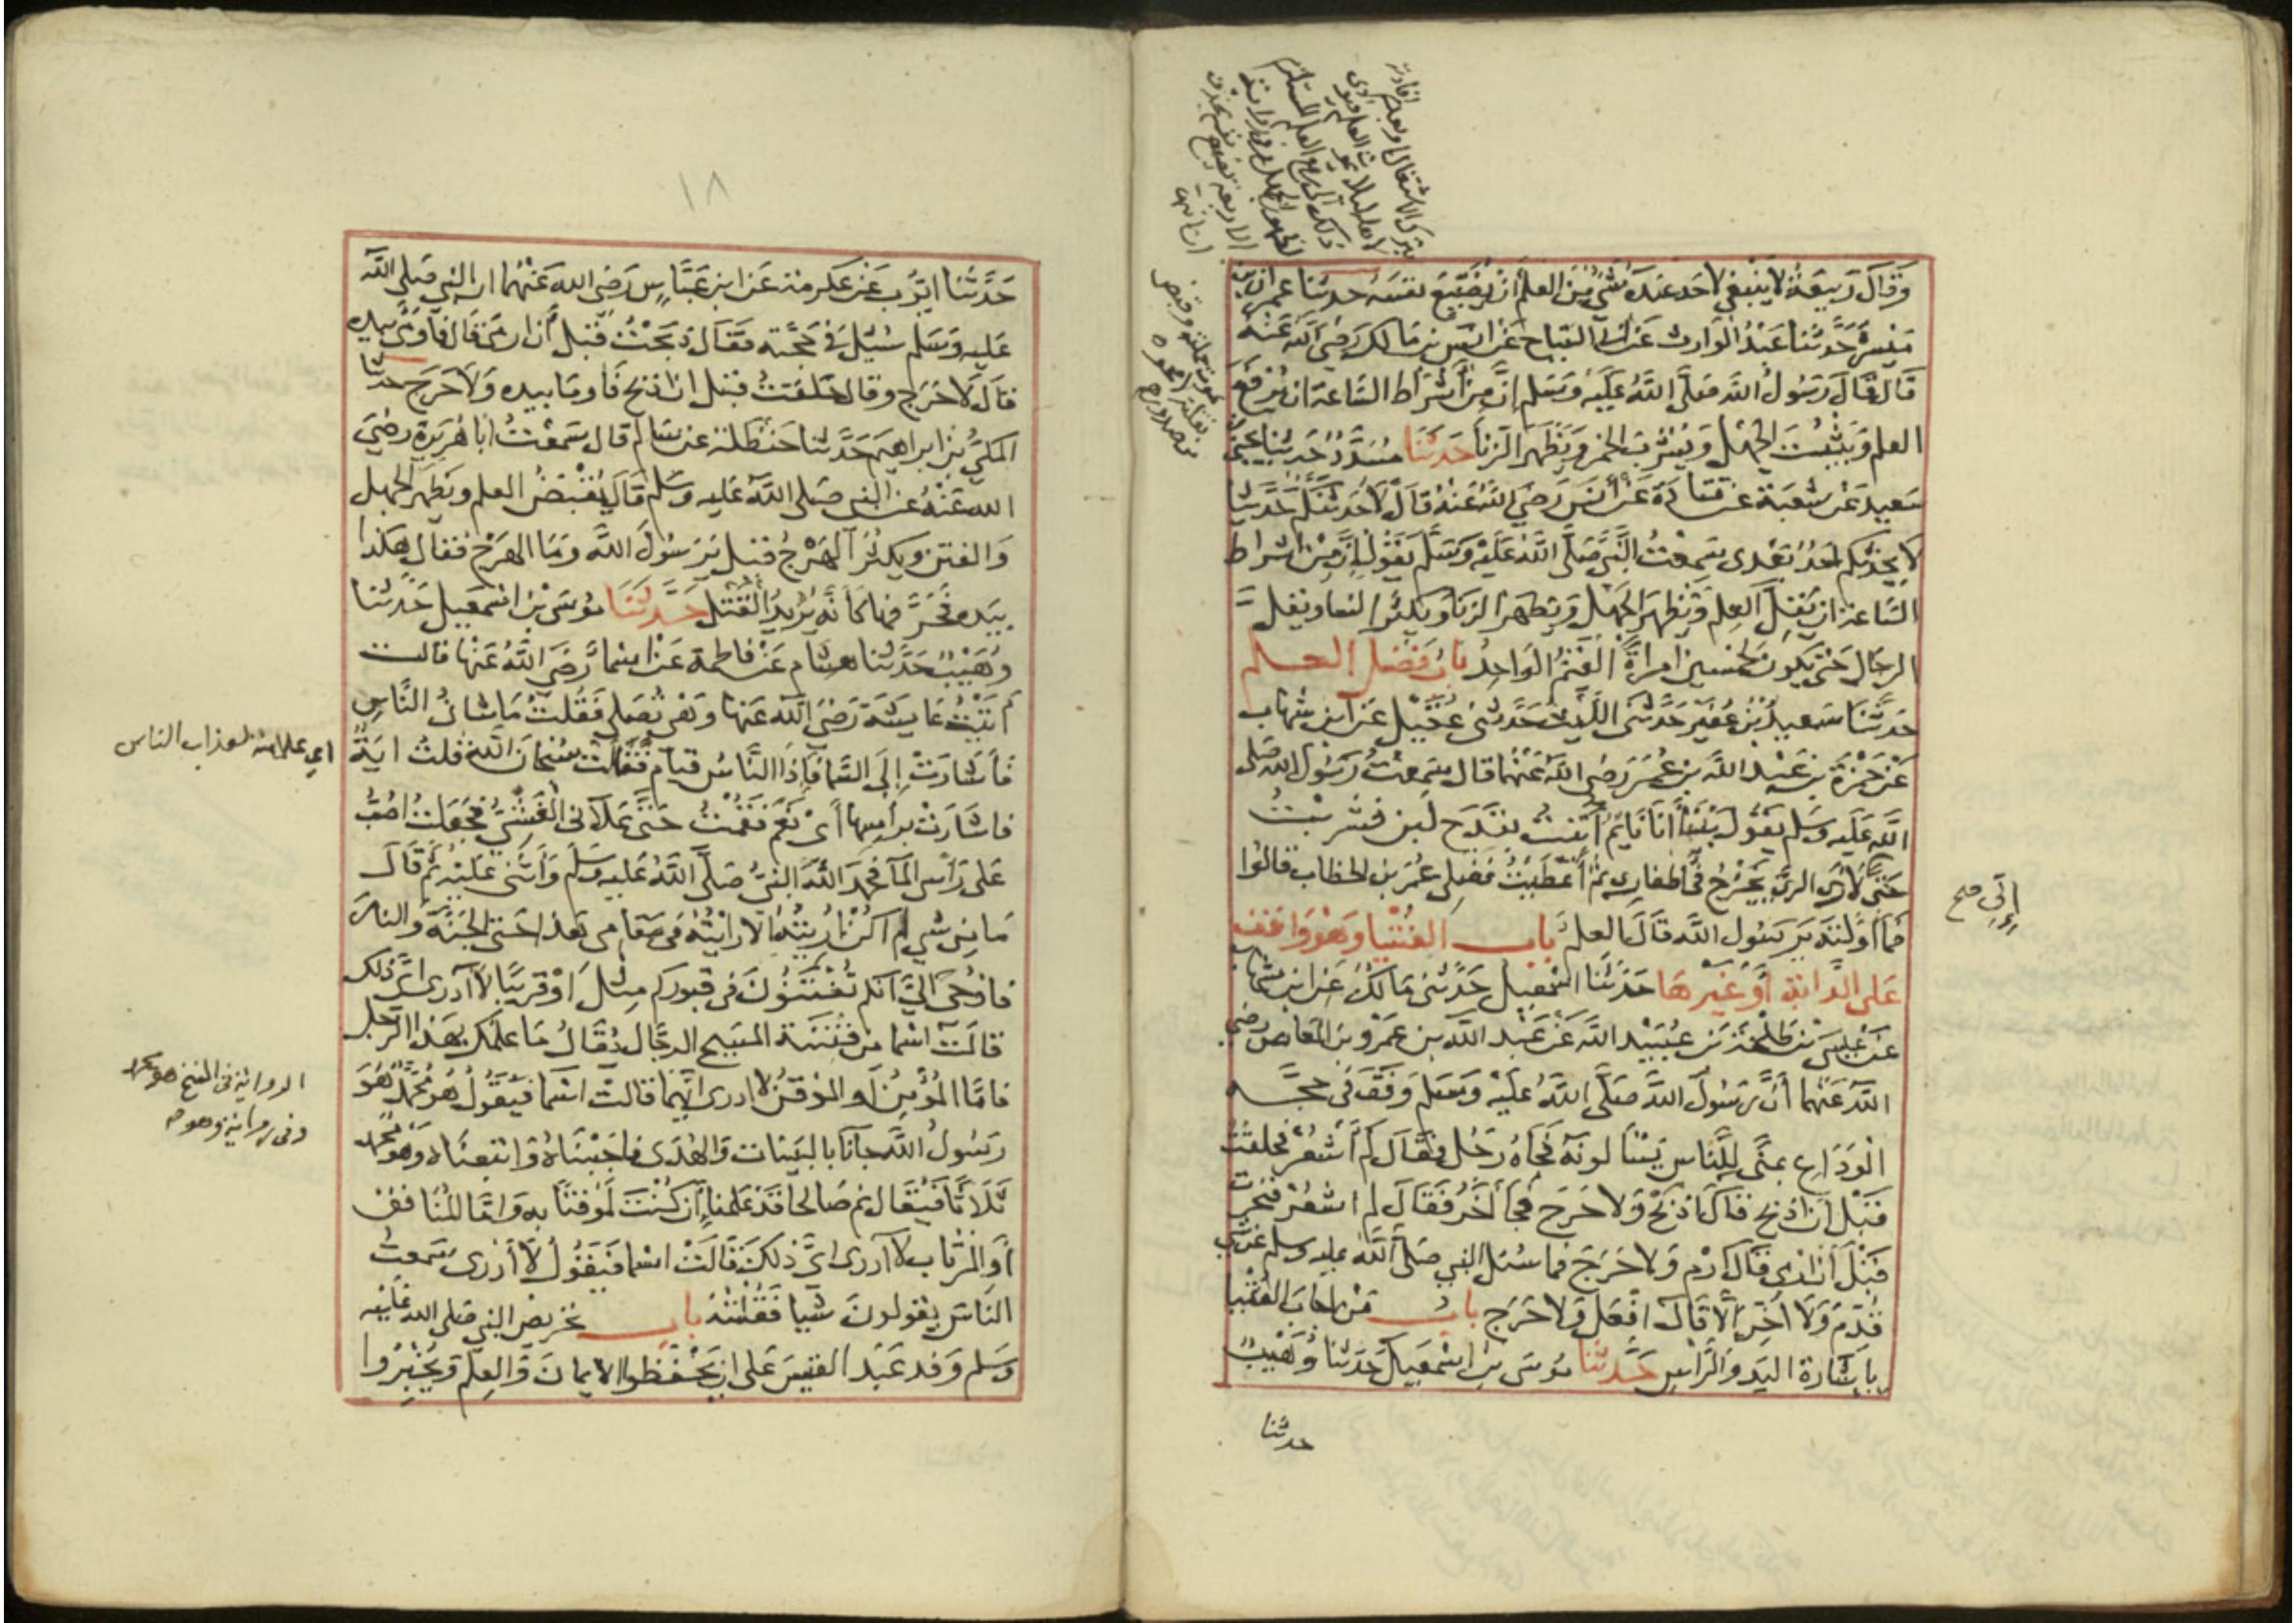 وَقَالَ رَبِيعَةُ لَا يَنْبَغِي لِأَحَدٍ عِنْدَهُ شَيْءٌ مِنَ العلم أن يُضَيِّعَ نفسَه حدثنا عمران بن
مَيْسَرَةَ حَدَّثَنَا عَبْدُ الوارث عَنْ أبي التياح عَنْ انَس بن مَالك رَضِيَ الله عَنْهُ
قَالَ قَالَ رَسُولُ الله صَلَّى اللَّهُ عَلَيْهِ وَسَلم إنَّ مِنْ أَشْرَاطِ السَّاعة ان يُرْفَعَ
العلم وَيَثْبُتَ الجَهْل وَيُشْرَبَ الخمر وَيَظْهَرَ الزنا حَدَّثَنَا مُسَدَّدٌ حَدثنا يحيى بن
سَعِيد عَنْ شُعْبَة عن قتَادَة عَنْ أنَس رَضِيَ اللهُ عَنْهُ قَالَ لَأُحَدِّثَنَّكُم حَدَّيثا
لا يحدثكم أحَدٌ بَعْدى سَمِعْتُ النَّبِيَّ صَلَّى اللَّهُ عَلَيْهِ وَسَلَّم يَقُولُ إنَّ مِنْ اشراط
السَّاعة ان يَقِلَّ العِلم وَيَظْهَرَ الجَهْل وَيظهر الزنَا وَيَكْثُر النسا ويقلَّ
الرجَال حَتّى يكونَ لخمسين امراةً القَيِّمُ الوَاحِدُ بابُ فَضل العلم
حَدَّثَنَا سَعِيدُ بْنُ عُفَيْر حَدَّثَنى اللَّيْث حَدَّثنى عُقَيْل عَن ابن شهاب
عَنْ حَمْزَةَ بن عَبْد اللَّه بن عُمَرَ رَضى اللهُ عَنْهُمَا قال سَمِعْتُ رَسُولَ الله صَلى
اللَّه عَلَيه وَسَلم يَقُولُ بَيْنَا أنَا نَايِمٌ أُتيتُ بقَدَح لبن فشربْتُ
حَتى لأرَى الرىَّ يَخْرُجُ في أظفارى ثم أعْطَيْتُ فَضلى عُمَرَ بن الخطاب قالوُا
فما أوَّلْتَهُ يَرَسُول اللَّه قَالَ العلمَ باب الفُتْيا وَهْوَ وَاقف
عَلى الدَّابة أوْ غَيْرهَا حَدثَنَا اسْمعِيل حَدَّثنى مَالكٌ عَن ابن شهاب
عَنْ عيسَى بْن طَلحَة بن عُبَيْد اللَّه عَنْ عَبْد الله بن عَمْرو بن العَاص رضى
اللَّه عَنْهما أنَّ رَسُولَ اللَّه صَلَّى اللَّهُ عَلَيْه وَسَلم وَقَفَ في حَجَّة
الْوَدَاعِ بمنًى لِلنَّاس يَسْئلونَهُ فَجَاهُ رَجُل فقَالَ لَمْ أَشْعُرْ فَحلقْتُ
قَبْلَ أنْ أذْبح فقال اذْبَحْ وَلَا حَرَج فجَا آخَرُ فَقَالَ لم اشعُرْ فنَحرت
قَبْلَ أنْ أرْمى فقَالَ ارْم وَلا حَرَجَ فما سُئل النبى صَلَّى اللَّهُ عليه وسلم عن شي
قُدّمَ وَلَا أخّرَ إلَّا قَالَ افْعَل وَلا حَرَج بابُ مَنْ اجَابَ الفُتْيا
بإشَارة اليَد وَالرَّاس حَدَّثنا مُوسَى بن اسْمعِيل حَدَثنا وُهَيْبٌ
حدثنا
إنِّي صح
١٨
حَدَّثنَا ايُّوب عَنْ عكرمة عَن ابن عَبَّاس رَضى الله عَنْهُما ان النبى صَلى الله
عَليه وَسَلم سُئِل فى حَجَّته فقَالَ ذبَحْتُ قَبْل أن ارمى قال فأومَى بيده
قالَ لَا حَرَج وقال حَلَقتُ قبل ان اذبح فَاومَا بيده وَلَا حَرَج حدثنا
المكىُّ بن ابراهيم حَدَّثنا حَنْظلة عن سَالم قال سَمعْتُ ابَا هُرَيرَة رضىَ
الله عَنْهُ عن النبى صَلى اللَّه عَليه وسَلم قَالَ يُقْبَضُ العلم ويَظْهر الجهل
وَالفتن ويكثُرُ الهَرْجُ قيل يَرَسُولَ اللَّه وَمَا الهَرْج فَقال هكذا
بيَده فحَرَّفها كَأنَّهُ يُريدُ القَتْل حَدَّثَنَا مُوسَى بن اسْمعِيل حَدَّثنا
وُهَيْبٌ حَدَّثنا هشام عَنْ فاطمة عَنْ اسْما رَضىَ اللَّه عَنْها قالت
أتَيْتُ عَايشَة رَضىَ اللَّه عَنها وَهىَ تُصَلى فَقُلتُ مَا شَانُ النَّاسِ
فأشَارَتْ إلَى السَّما فَإذَا النَّاسُ قيام فَقالتْ سُبْحَانَ اللَّه قلتُ ايَةٌ
فاشَارَتْ برأسها أىْ نَعَم فقمْتُ حَتَّى عَلَانى الْغَشْىُ فجَعَلتُ اصُبُّ
عَلى رَأسى المَا فحَمدَ اللَّهَ النبىُّ صَلَّى اللَّهُ عَليه وَسَلَم وَأثْنى عَلَيْه ثم قَالَ
مَا من شى لم اكن أُريتُهُ الا رايْتُهُ فى مَقامى هَذا حَتى الجَنَّة وَالنارَ
فاوْحىَ الىَّ انكم تُفْتَنُونَ فى قبوركم مثْلَ أوْ قَريبًا لا أدرى اىَّ ذلك
قالَتْ اسْما من فتْنَة المَسيح الدجَّال يُقَالُ مَا علمُكَ بهذا الرَّجل
فامَّا المُؤْمِنُ أو المُوْقنُ لا ادرى ايهما قالت اسْما فيَقُولُ هُوَ مُحَمَّدٌ هُوَ
رَسُولُ اللَّه جَانَا بالبَيِّنات وَالهُدَى فاجَبْنَاهُ وَاتبَعْنَاه وهُوَ محمد
ثَلَاثًا فَيُقَال نَم صَالحا قَدْ عَلمْنا إنْ كُنْتَ لَمُوقنًا به وَأمَّا المُنَافق
أو المُرْتاب لا أدرى اىَّ ذلكَ قالَتْ اسْما فيَقُولُ لَا أدْرى سَمعتُ
النَّاسَ يقولونَ شَيا فقُلْتُهُ باب تحْريض النبى صَلى الله عَلَيه
وسَلم وَفد عَبْد القَيس عَلى ان يَحْفَظوا الايمَانَ وَالعِلْم وَيُخْبِرُوا
اى علامة لعذاب الناس
الرواية فى الفتح هو محمد
وفى رواية وهو